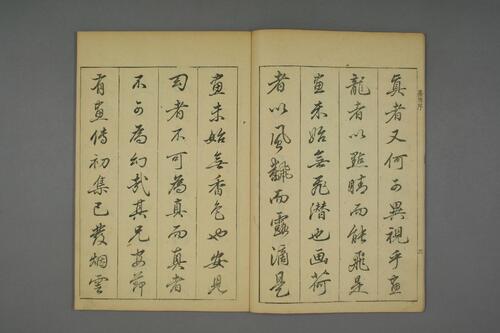 真者又何可異視乎畫
龍者以點睛而能飛是
畫未始無飛潜也画荷
者以風飜而露滴是
畫未始無香色也安見
幻者不可為真而真者
不可為幻哉其兄安節
有畫傳初集已發烟雲